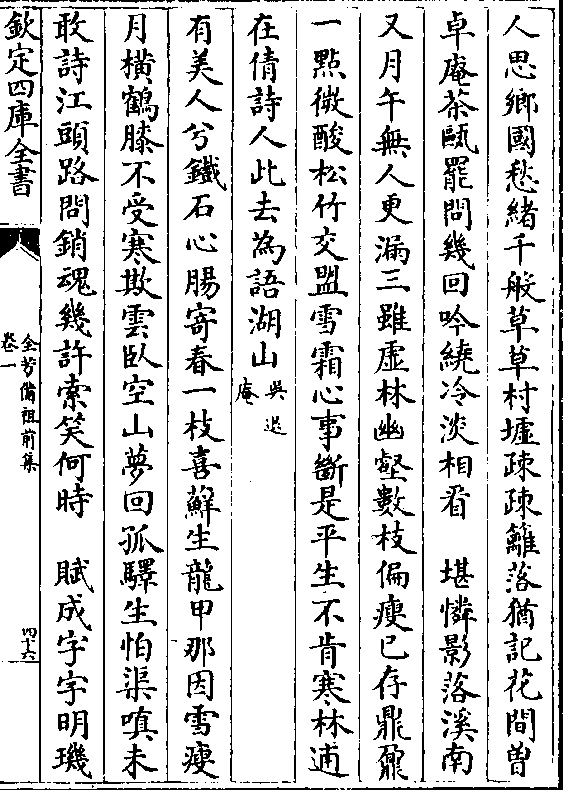 人思鄉國愁緒千般草草村墟疎疎籬落猶記花間曽
卓庵茶甌罷問幾回吟繞冷淡相看　堪憐影落溪南
又月午無人更漏三雖虛林幽壑數枝偏瘦已存鼎鼐
一點微酸松竹交盟雪霜心事斷是平生不肯寒林逋
在倩詩人此去為語湖山吳退庵
有美人兮鐵石心腸寄春一枝喜蘚生龍甲那因雪瘦
月横鶴膝不受寒欺雲卧空山夢回孤驛生怕渠嗔未
敢詩江頭路問銷魂幾許索笑何時　賦成字字明璣
欽定四庫全書
全芳備祖前集
卷一
四十六